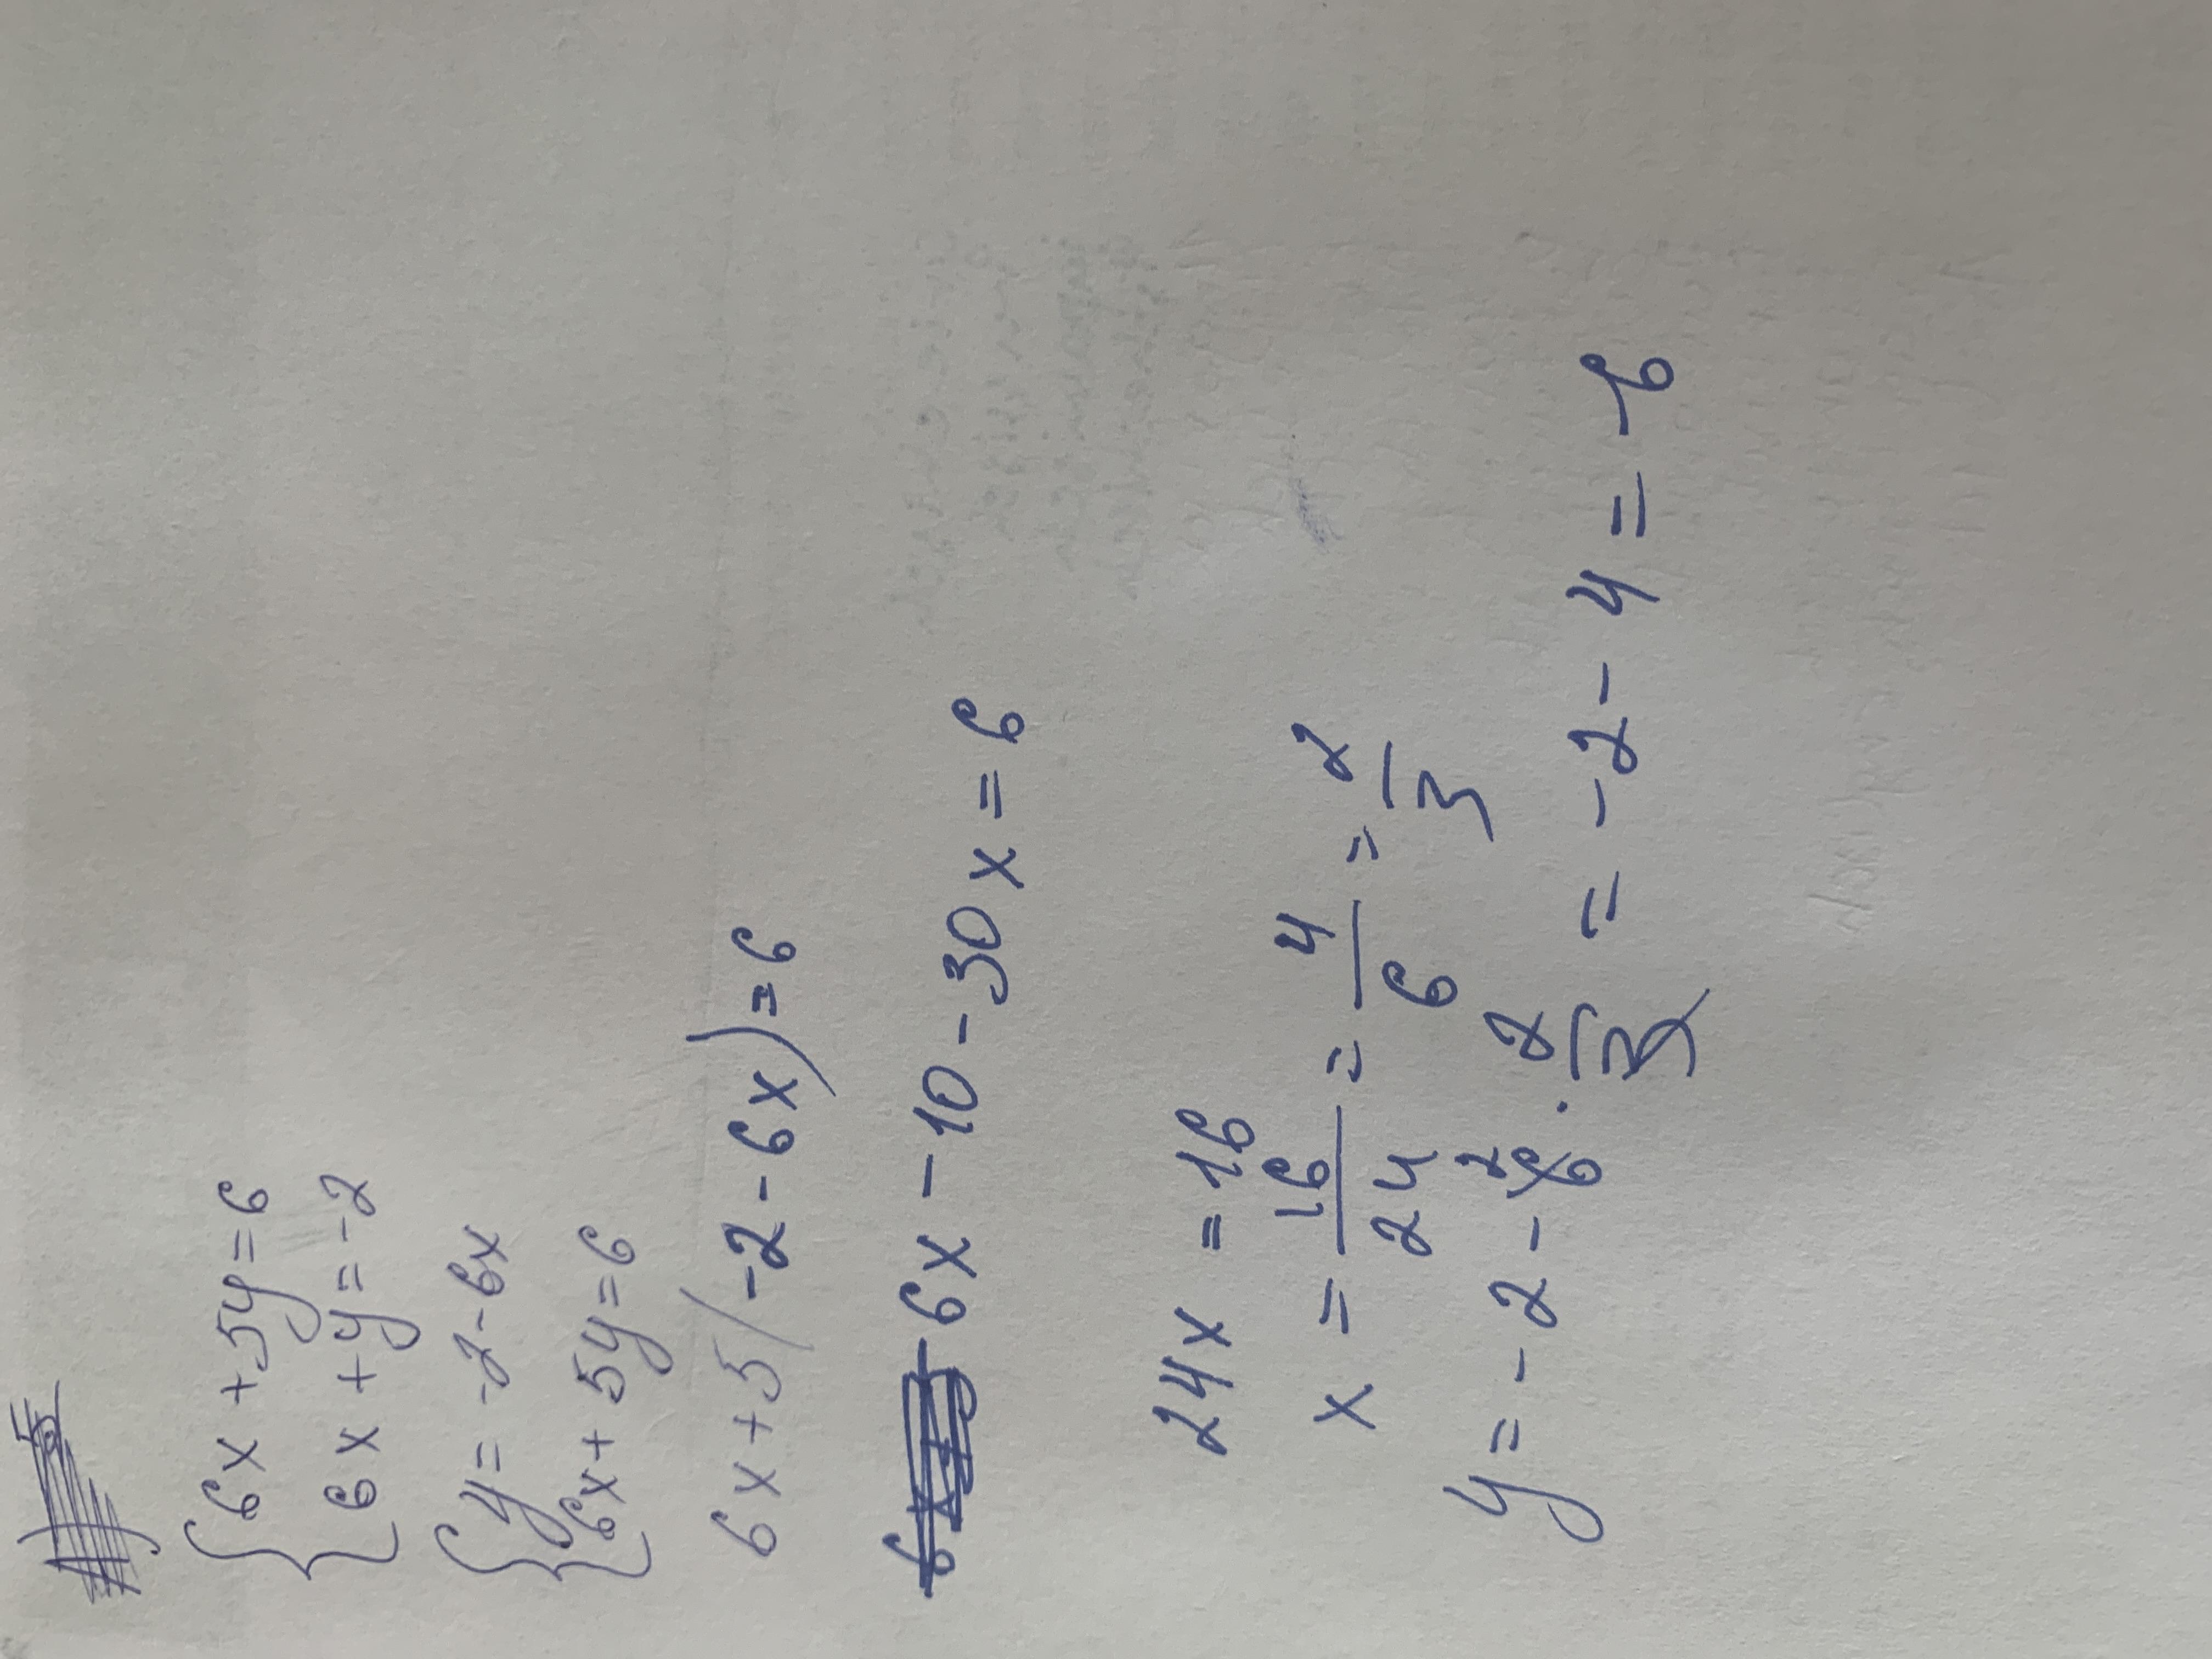 { 6x + 5y = 6
{ 6x + y = -2
{ y = -2 - 6x
{ 6x + 5y = 6
6x + 5(-2 - 6x) = 6
6x - 10 - 30x = 6
24x = 16
x = 16/24 = 4/6 = 2/3
y = -2 - 6 2 · 2/3 = -2 - 4 = -6